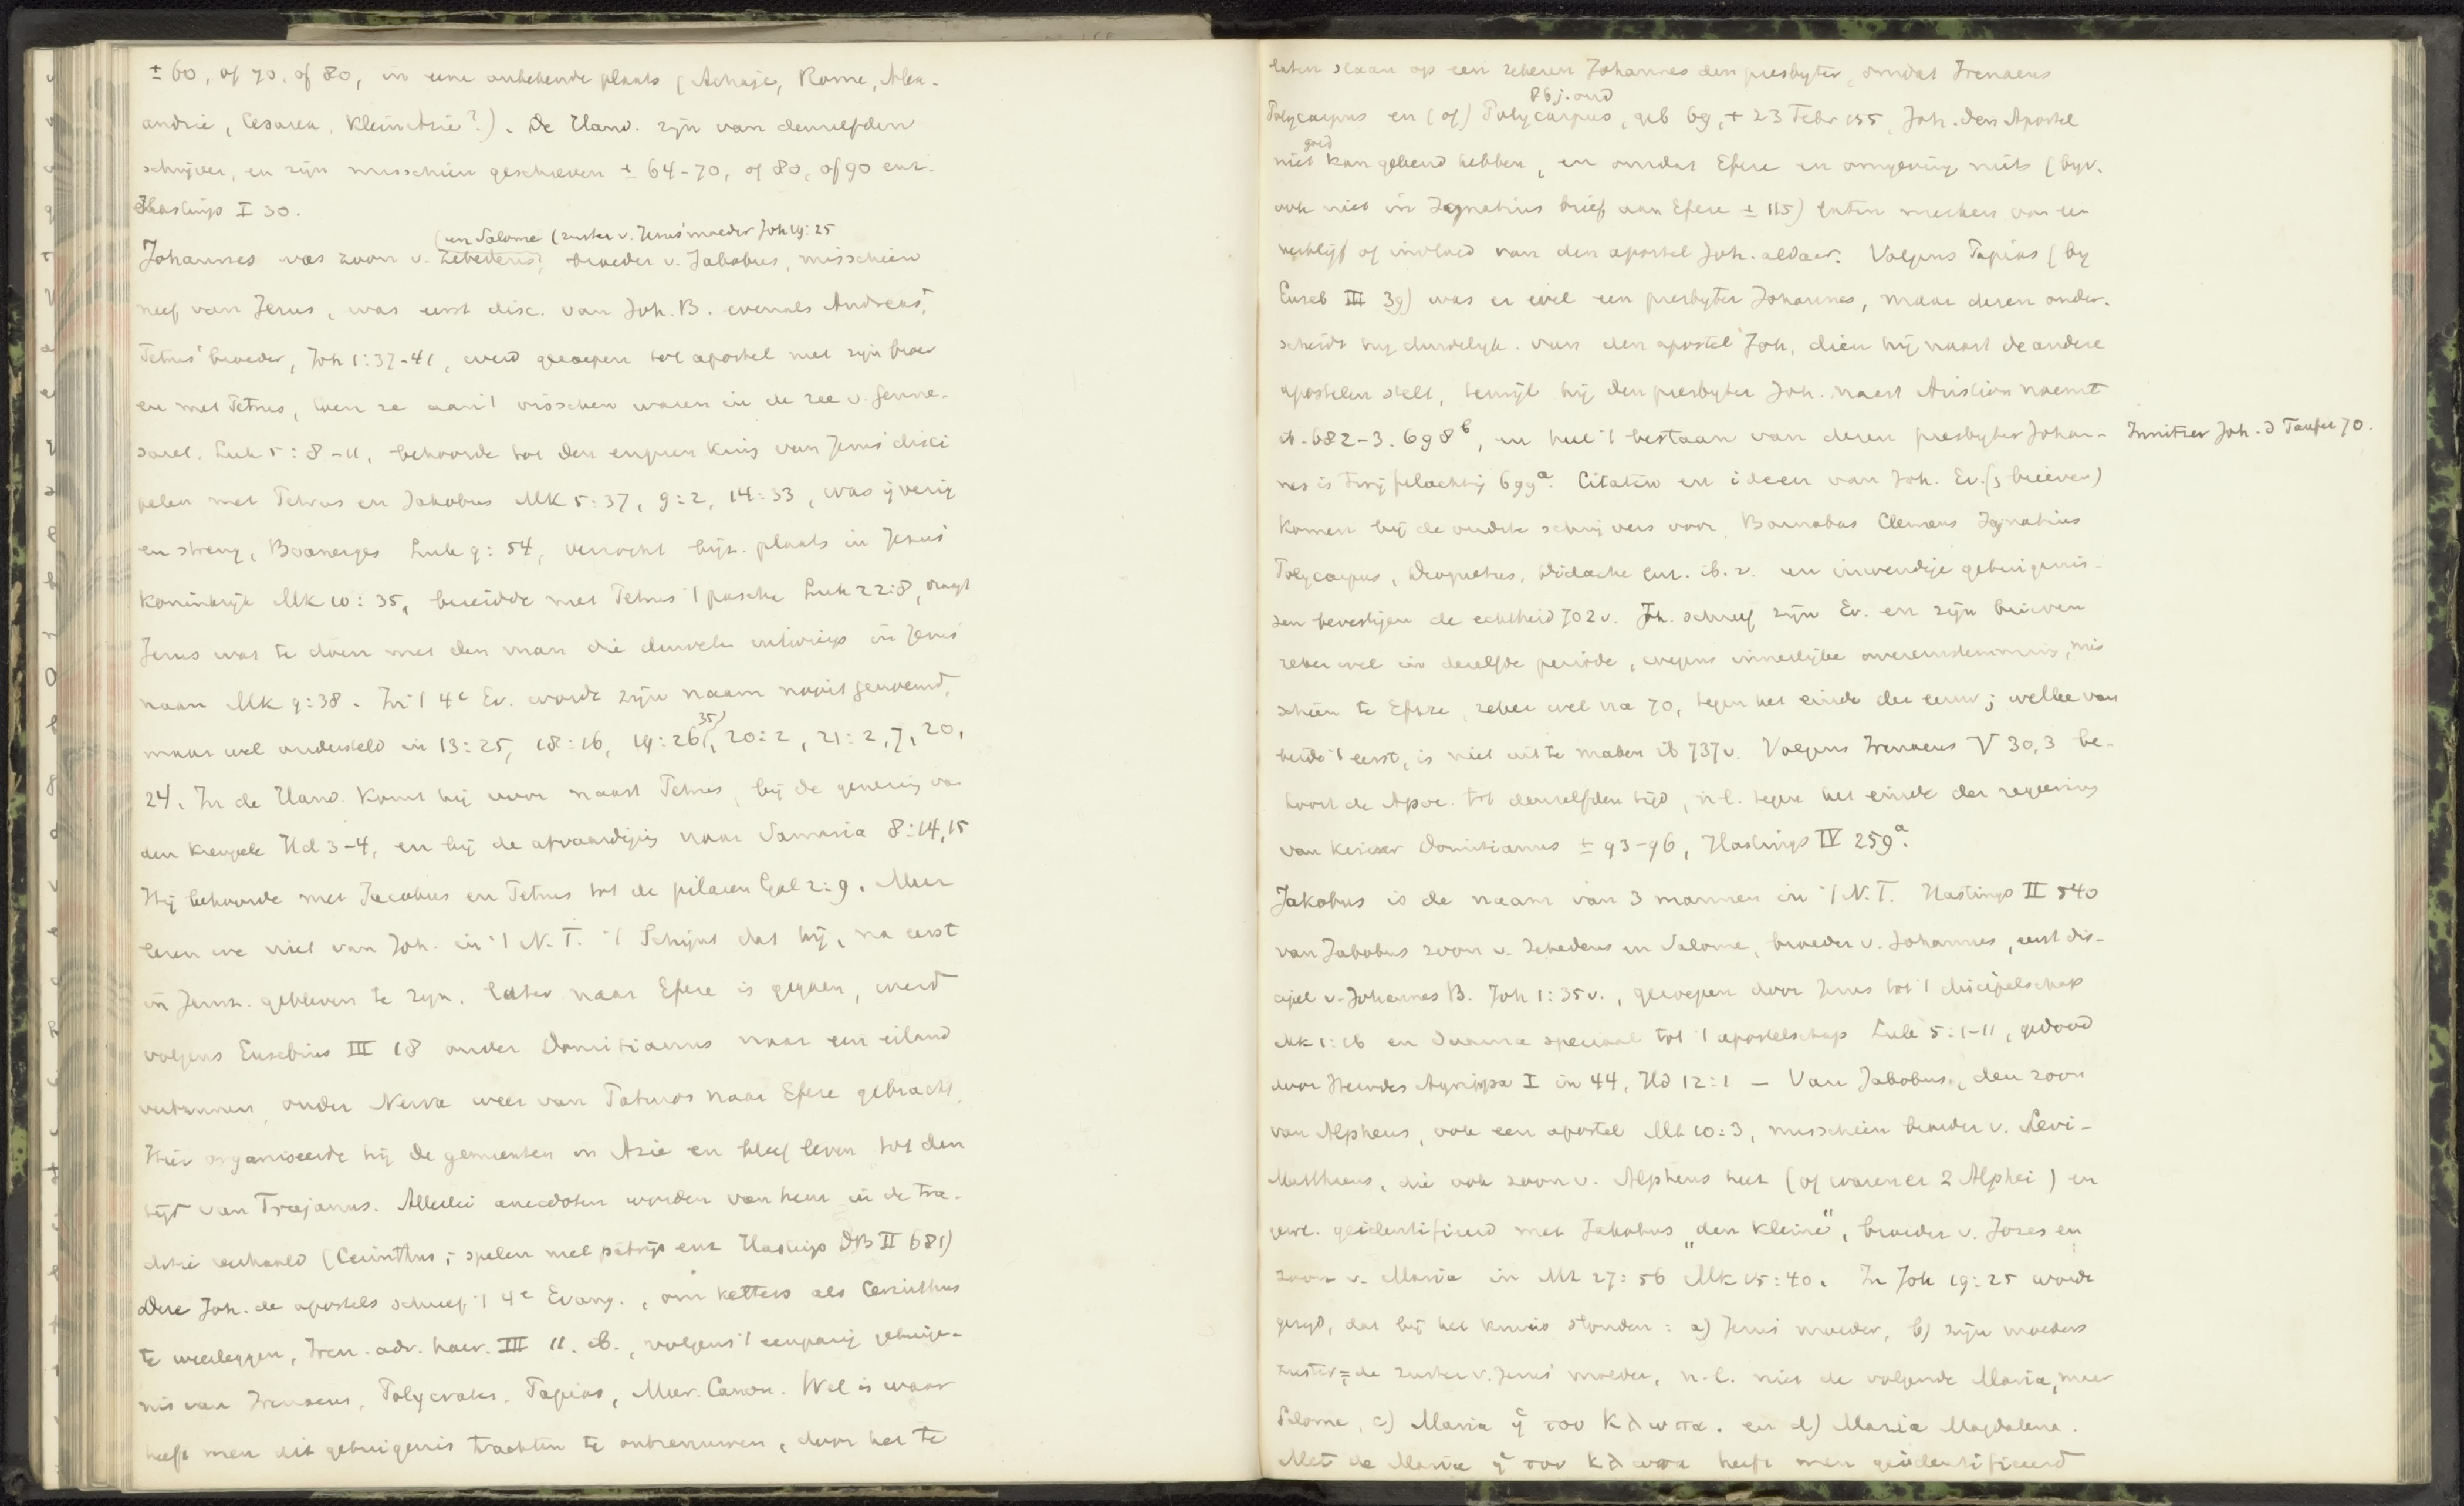 ± 60, of 70, of 80, in eene onbekende plaats (Achaje, Rome, Alex-
andrië, Cesarea, KleinAzië?). De Hand. zijn van denzelfden
schrijver, en zijn misschien geschreven ± 64-70, of 80, of 90 enz.
Hastings I 30.
(en Salome (zuster v. Jezus' moeder Joh 19:25
Johannes was zoon v. Zebedeus, broeder v. Jakobus, misschien
neef van Jezus, was eerst disc. van Joh. B. evenals Andreas,
Petrus' broeder, Joh 1:37-41, werd geroepen tot apostel met zijn broer
en met Petrus, toen ze aan 't visschen waren in de zee v. Genne-
saret. Luk 5:8-11, behoorde tot den engeren kring van Jezus' disci
pelen met Petrus en Jakobus Mk 5:37, 9:2, 14:33, was ijverig
en streng, Boanerges Luk 9:54, verzocht bijz. plaats in Jezus'
Koninkrijk Mk 10:35, bereidde met Petrus 't pascha Luk 22:8, vragt
Jezus wat te doen met den man die duivelen uitwierp in Jezus'
naam Mk 9:38. In 't 4e Ev. wordt zijn naam nooit genoemd,
35)
maar wel ondersteld in 13:25, 18:16, 19:26, 20:2, 21:2, 7, 20,
24. In de Hand. komt hij voor naast Petrus, bij de genezing van
den kreupele Hd 3-4, en bij de afvaardiging naar Samaria 8:14,15
Hij behoorde met Jacobus en Petrus tot de pilaren Gal 2:9. Meer
leren we niet van Joh. in 't N.T. 't Schijnt dat hij, na eerst
in Jeruz. gebleven te zijn, later naar Efeze is gegaan, werd
volgens Eusebius III 18 onder Domitianus naar een eiland
verbannen, onder Nerva weer van Patmos naar Efeze gebracht.
Hier organiseerde hij de gemeenten in Azie en bleef leven tot den
tijd van Trajanus. Allerlei anecdoten worden van hem in de tra-
ditie verhaald (Cerinthus, spelen met patrijs enz Hastings DB II 681)
Deze Joh. de apostels schreef 't 4e Evang., om ketters als Cerinthus
te weerleggen, Iren. adv. haer. III 11. ib., volgens 't eenparig getuige-
nis van Irenaeus, Polycrates, Papias, Mur. Canon. Wel is waar
heeft men dit getuigenis trachten te ontzenuwen, door het te
laten slaan op een zekeren Johannes den presbyter, omdat Irenaeus
86 j. oud
Polycarpus en (of) Polycarpus, geb 69, + 23 Febr 155, Joh. den Apostel
goed
niet kan gekend hebben, en omdat Efeze en omgeving niets (bijv.
ook niet in Ignatius brief aan Efeze ± 115) laten merken van een
verblijf of invloed van den apostel Joh. aldaar. Volgens Papias (bij
Euseb III 39) was er wel een presbyter Johannes, maar dezen onder-
scheidt hij duidelijk van den apostel Joh, dien hij naast de andere
apostelen stelt, terwijl hij den presbyter Joh. naast Aristion noemt
ib. 682-3. 698b, en heel 't bestaan van dezen presbyter Johan-
Innitzer Joh. d Taüfer 70.
nes is twijfelachtig 699a. Citaten en ideen van Joh. Ev. (3 brieven)
komen bij de oudste schrijvers voor, Barnabas Clemens Ignatius
Polycarpus, Diognetus, Didache enz. ib. v. en inwendige getuigenis-
sen bevestigen de echtheid 702 v. Joh. schreef zijn Ev. en zijn brieven
zeker wel in dezelfde periode, wegens innerlijke overeenstemming, mis
schien te Efeze, zeker wel na 70, tegen het einde der eeuw; welke van
beide 't eerst, is niet uit te maken ib 737 v. Volgens Irenaeus V 30,3 be-
hoort de Apoc. tot denzelfden tijd, n.l. tegen het einde der regeering
van keizer Domitianus ± 93-96, Hastings IV 259a.
Jakobus is de naam van 3 mannen in 't N.T. Hastings II 540
van Jakobus zoon v. Zebedeus en Salome, broeder v. Johannes, eerst dis-
cipel v. Johannes B. Joh 1:35 v., geroepen door Jezus tot 't discipelschap
Mk 1:16 en daarna speciaal tot 't apostelschap Luk 5:1-11, gedood
door Herodes Agrippa I in 44, Hd 12:1 — Van Jakobus, den zoon
van Alpheus, ook een apostel Mt 10:3, misschien broeder v. Levi-
Mattheus, die ook zoon v. Alpheus heet (of waren er 2 Alphei) en
gew. geidentificeerd met Jakobus „den kleine", broeder v. Jozes en
zoon v. Maria in Mt 27:56 Mk 15:40. In Joh 19:25 wordt
gezegd, dat bij het kruis stonden: a) Jezus' moeder, b) zijn moeders
zuster = de zuster v. Jezus' moeder, n.l. niet de volgende Maria, maar
Salome, c) Maria ἡ του Κλωπα. en d) Maria Magdalena.
Met de Maria ἡ του Κλωπα heeft men geidentificeerd